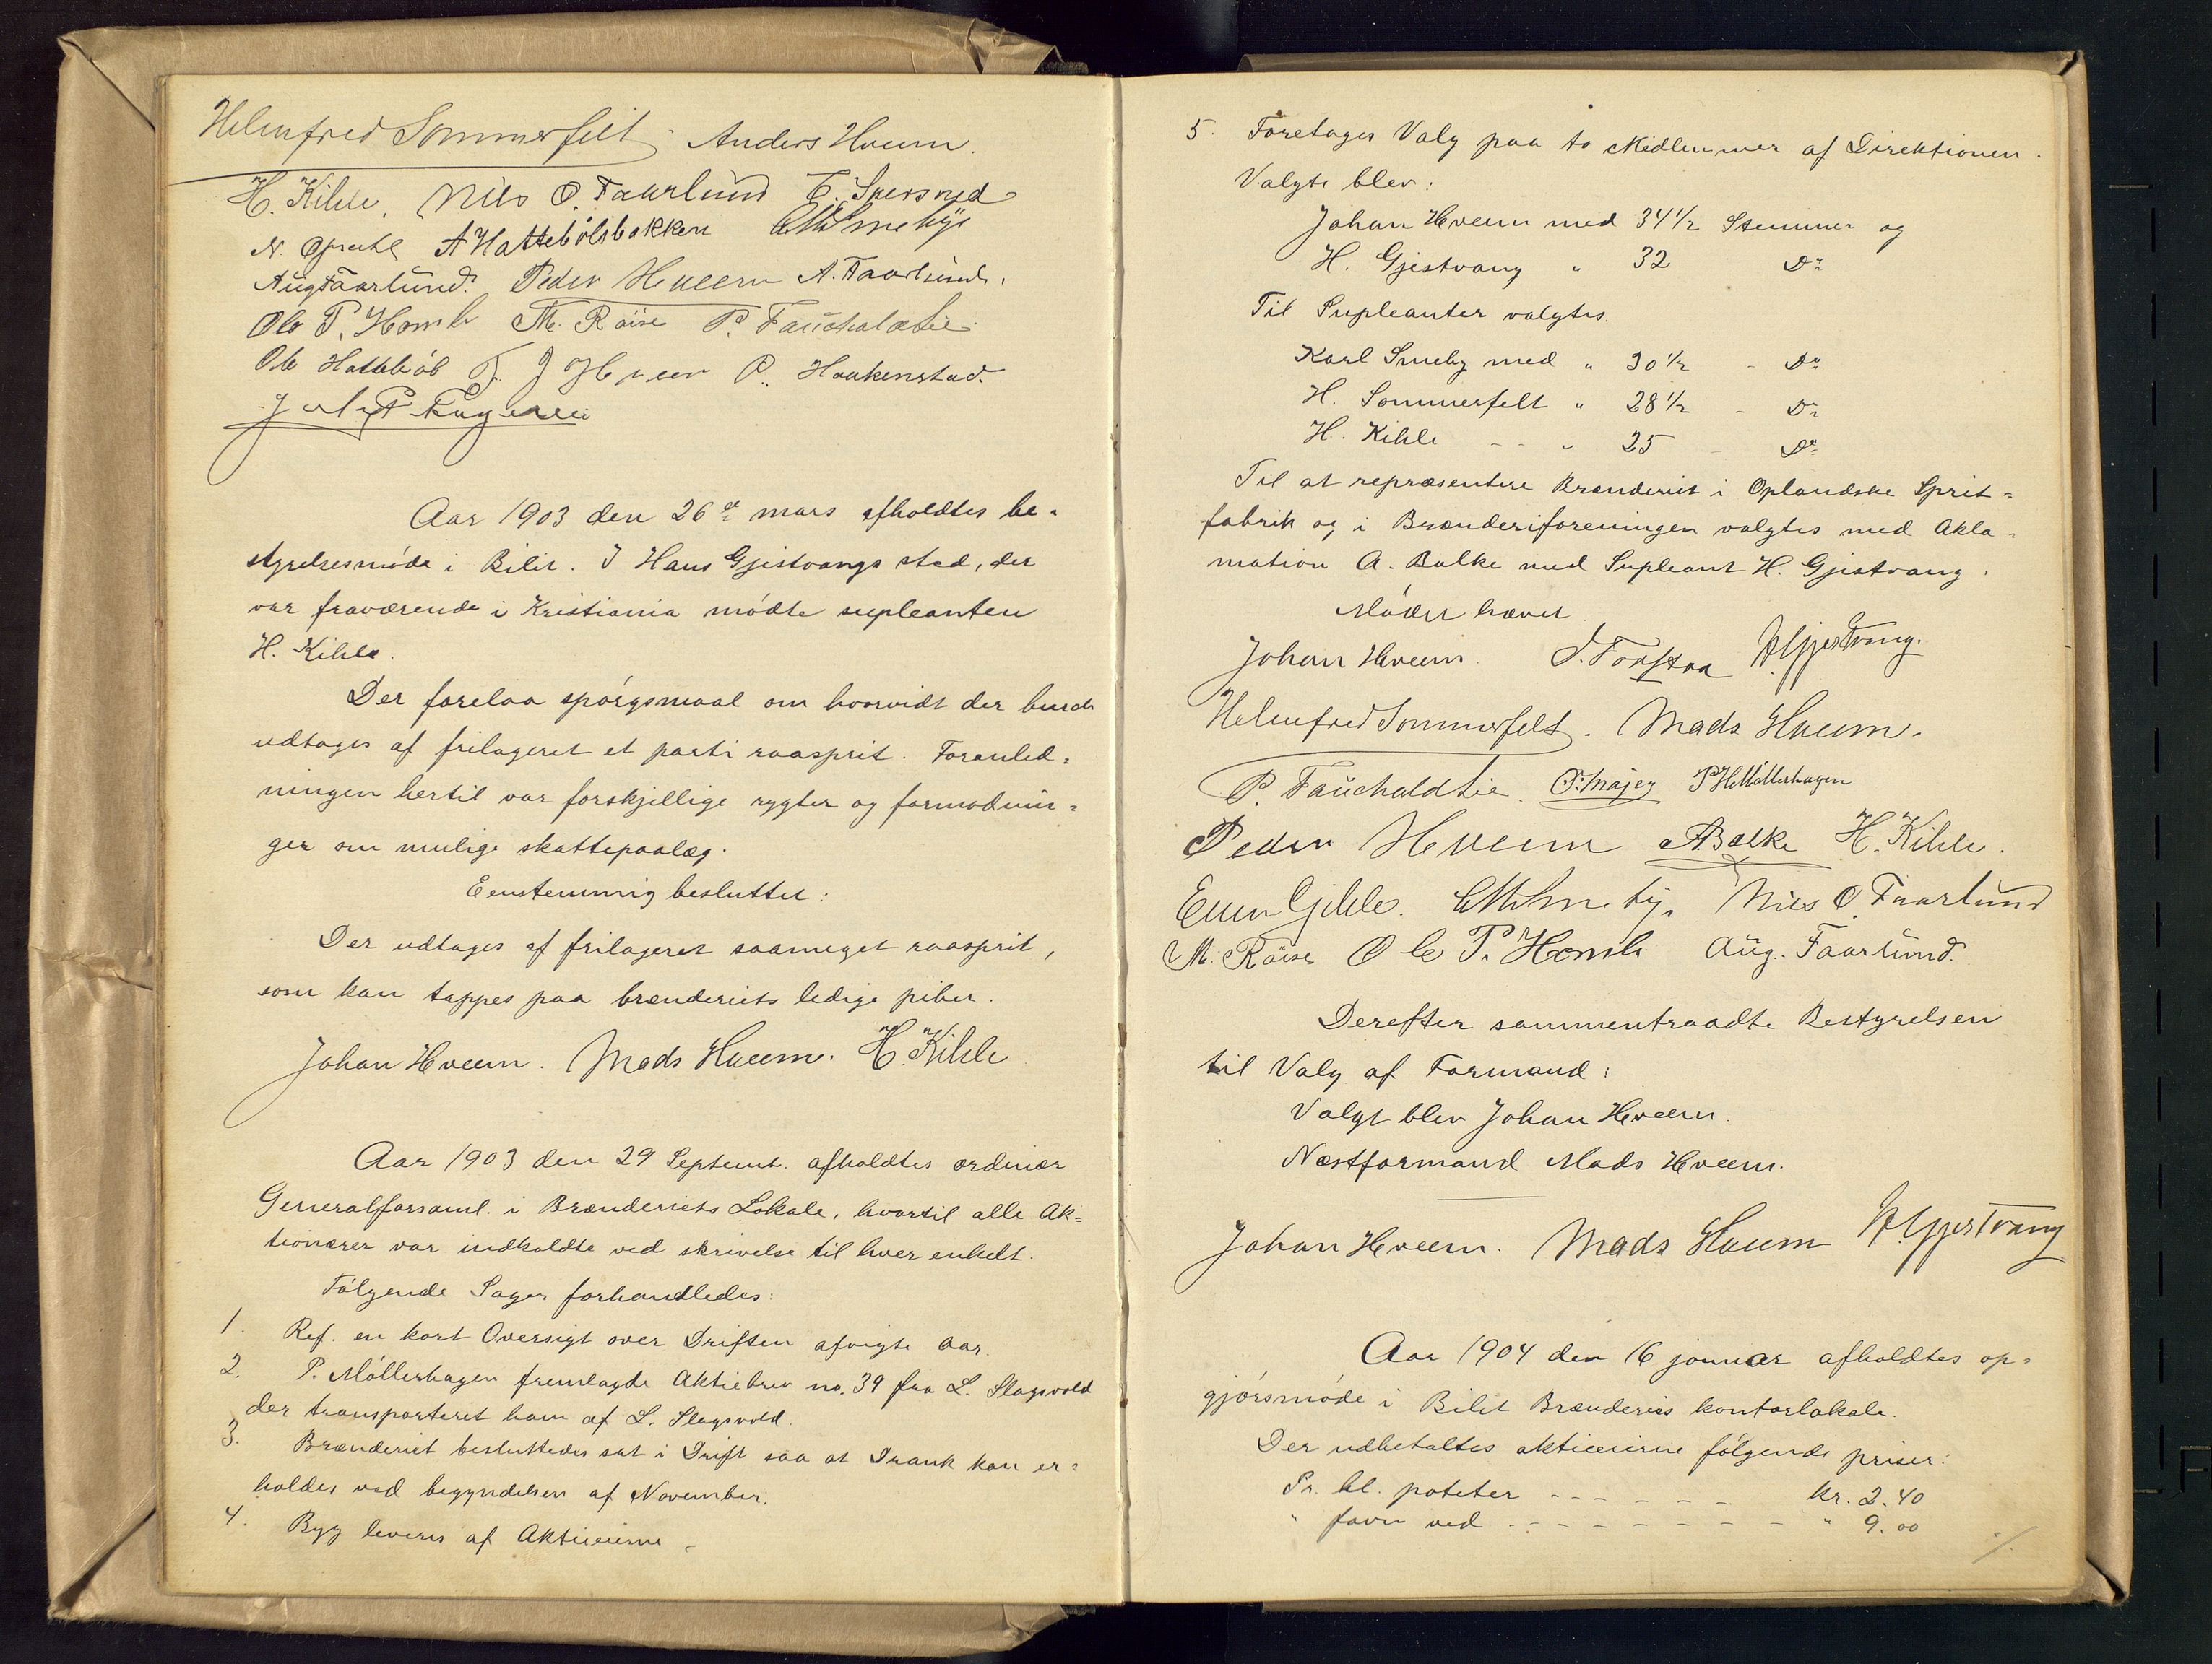 Helmfred Sommerfelt Anders Hveem.
H. Kihle, Nils O. Faarlund
N. Opsahl A Hattebölsbakken
Aug Faarlund. Peder Hveem A. Faarlund.
Ole P. Homb M. Röise P. Fauchaldtie
Ole Hattebøl T. J Hveem P. Haakenstad.
Aar 1903 den 26de mars afholdtes be-
styrelsesmöde i Bilit. I Hans Gjestvangs sted, der
var fraværende i Kristiania mödte supleanten
H. Kihle.
Der forelaa spörgsmaal om hvorvidt der burde
udtages af frilageret et parti raasprit. Foranled-
ningen hertil var forskjellige rygter og formodnin-
ger om mulige skattepaalæg.
Eenstemmig besluttet:
Der udtages af frilageret saameget raasprit,
som kan tappes paa brænderiets ledige piber.
Johan Hveem. Mads Hveem. H. Kihle
Aar 1903 den 29 Septemb. afholdtes ordinær
Generalforsaml. i Brænderiets Lokale, hvortil alle Ak-
tionærer var indkaldte ved skrivelse til hver enkelt.
Fölgende Sager forhandledes:
1. Ref. en kort Oversigt over Driften afvigte Aar.
2. P. Möllerhagen fremlagde Aktiebrev no. 39 fra L. Slagsvold
der transporteret ham af L. Slagsvold.
3. Brænderiet besluttedes sat i Drift saa at Drank kan er-
holdes ved begyndelsen af November.
4. Byg leveres af Aktieeierne.
5. Foretages Valg paa to Medlemmer af Direktionen.
Valgte blev:
Johan Hveem med 34 1/2 Stemmer og
H. Gjestvang " 32 Do
Til Supleanter valgtes.
Karl Smeby med " 30 1/2 - Do
H. Sommerfelt " 28 1/2 - Do
H. Kihle - - " 25 - Do
Til at repræsentere Brænderiet i Oplandske Sprit-
fabrik og i Brænderiforeningen valgtes med Akla-
mation A. Balke med Supleant H. Gjestvang.
Mödet hævet
Johan Hveem. H Gjestvang.
Helmfred Sommerfelt. Mads Hveem.
P. Fauchaldtie. P H Möllerhagen
Peder Hveem A Balke H. Kihle.
Even Gihle. Nils O. Faarlund
M. Röise Ole P. Homb Aug. Faarlund.
Derefter sammentraadte Bestyrelsen
til Valg af Formand:
Valgt blev Johan Hveem.
Næstformand Mads Hveem.
Johan Hveem. Mads Hveem H Gjestvang
Aar 1904 den 16 januar afholdtes op-
gjörsmöde i Bilit Brænderies kontorlokale.
Der udbetaltes aktieeierne fölgende priser:
Pr. hl. poteter - - - - - - kr. 2.40
" favn ved - - - - - - - - " 9.00